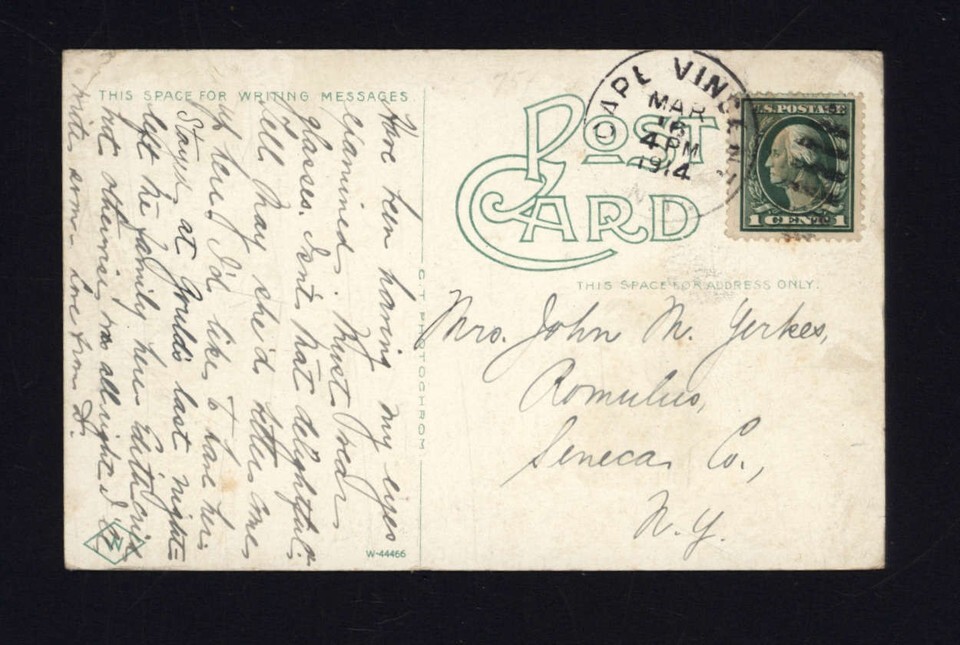 THIS SPACE FOR WRITING MESSAGES
Have been having my eyes
examined. Must need
glasses. Isn't that delightful?
Tell May she'd better come
up here, I'd like to have her.
Stayed at Gould's last night =
left the family here Edith
not otherwise was all right. I
wrote Love from
C.T. PHOTOCHROM
W-44466
POST CARD
CAPE VINCENT
MAR
16
4 PM
1914
U.S. POSTAGE
1 CENT 1
THIS SPACE FOR ADDRESS ONLY.
Mrs. John M. Yerkes,
Romulus,
Seneca Co.,
N.Y.